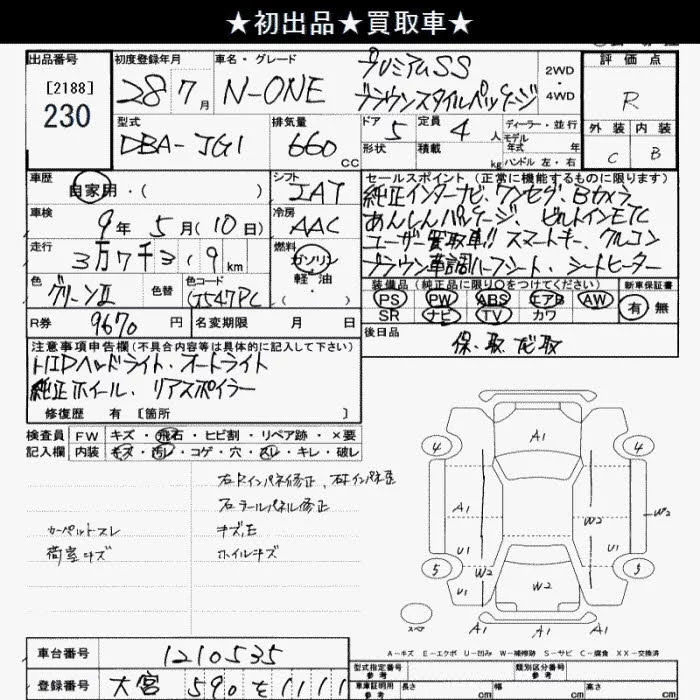 ★初出品★買取車★
出品番号 初度登録年月 車名・グレード 評価点
[2188]
230
28年7月 N-ONE プレミアムSS
ブラウンスタイルパッケージ
2WD
4WD
R
型式 排気量 ドア 定員 ディーラー・並行 外装 内装
DBA-JG1 660cc 5 4人 モデル年式 年
形状 積載 kg ハンドル 左・右
C B
車歴 自家用・( )
シフト IAT
車検 9年5月(10日)
冷房 AAC
走行 3万7千319km
燃料 ガソリン・軽油・( )
色 グリーンⅡ 色替 色コード G547PC
R券 9670円 名変期限 月 日
セールスポイント(正常に機能するものに限ります)
純正インターナビ、ワンセグ、Bカメラ
あんしんパッケージ、ビルトインETC
ユーザー買取車!! スマートキー、クルコン
ブラウン革調ハーフシート、シートヒーター
装備品(純正品に限り○をつけてください) 新車保証書
PS PW ABS エアB AW 有・無
SR ナビ TV カワ
後日品 保、取、ナビ取
注意事項申告欄(不具合内容等は具体的に記入して下さい)
HIDヘッドライト、オートライト
純正ホイール、リアスポイラー
修復歴 有 [箇所 ]
検査員 FW キズ・飛石・ヒビ割・リペア跡・×要
記入欄 内装 キズ・汚レ・コゲ・穴・スレ・キレ・破レ
右リヤインパネ修正、
右テールパネル修正
カーペットスレ キズ、E
荷室キズ ホイルキズ
A1
4 4
A1 W2 W2
U1 U1
5 5
W2
U1 W2
スペア A1 A1 A1
A-キズ E-エクボ U-凹み W-補修跡 S-サビ C-腐食 XX-交換済
車台番号 1210535
登録番号 大宮 590 を 1111
型式指定番号 参考 類別区分番号 参考
車庫証明用 参考 長さ cm 幅 cm 高さ cm